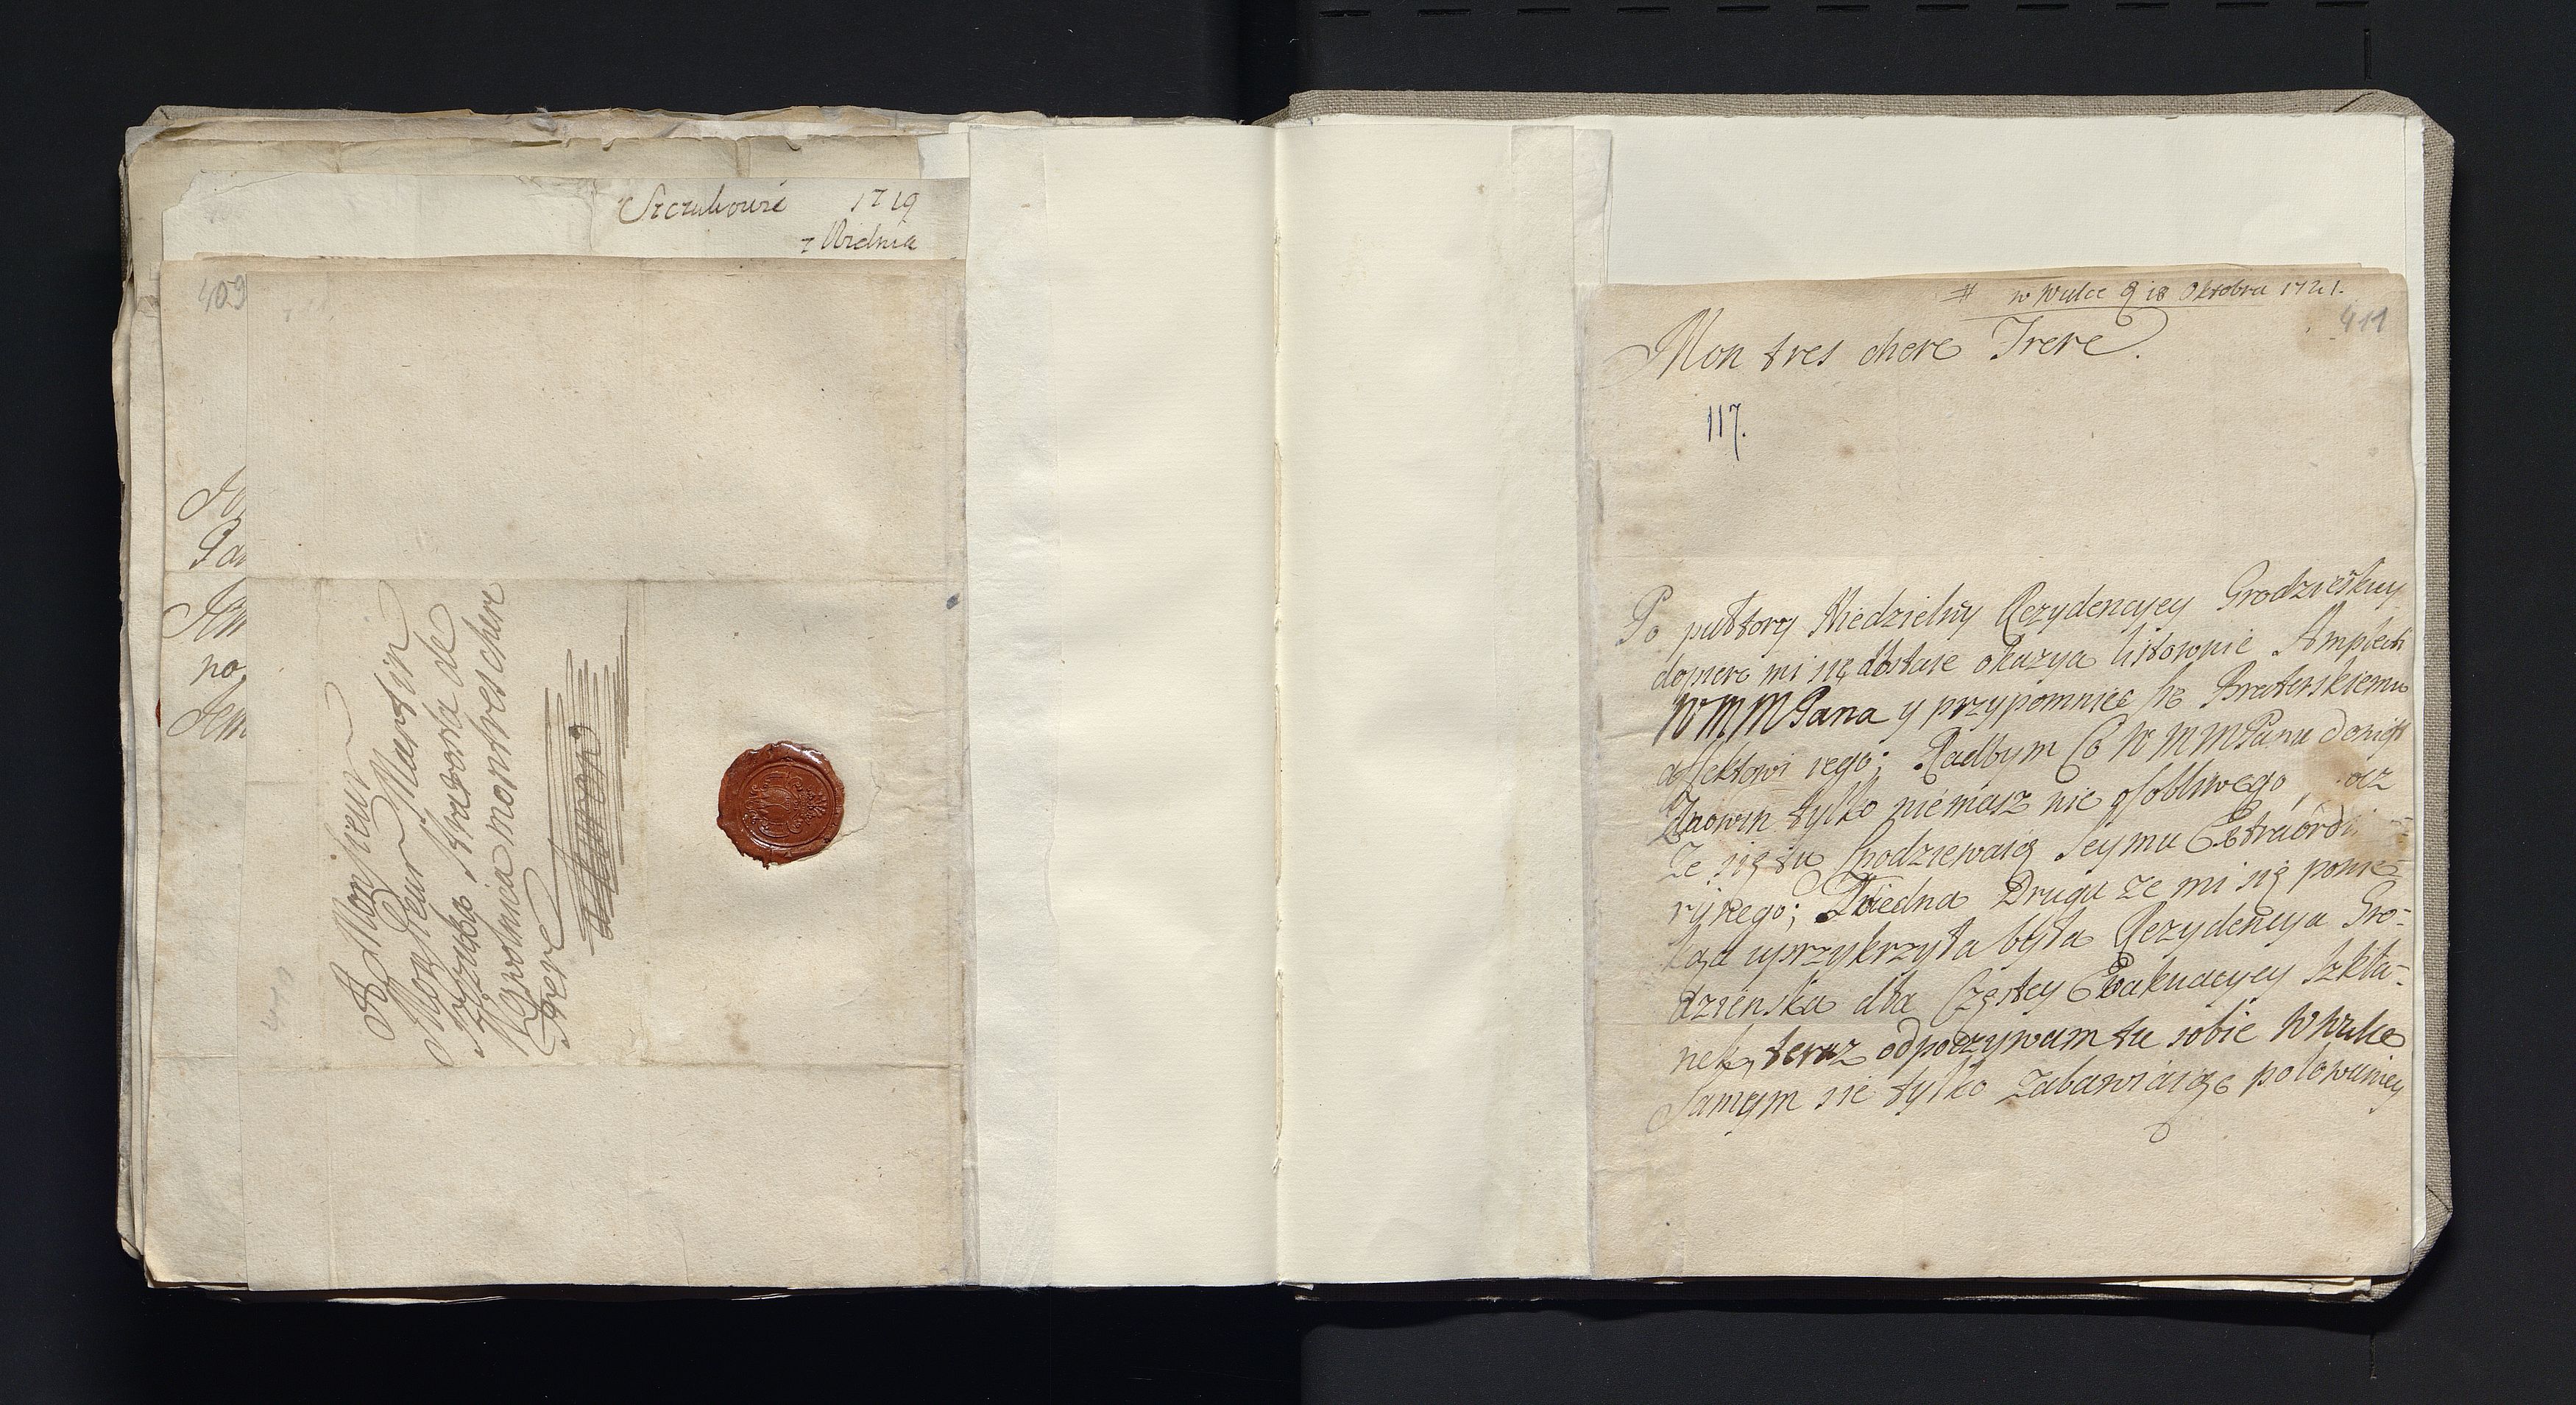 Szczukowie 1719
z Wiednia
409
Ja
Pa
Jem
po
Jem
A Monsieur
Monsieur Martin
Szczuka Starosta de
Wąwolnica mon tres chere
Frere
# w Wulce d 18 Oktobra 1721.
411
Mon tres chere Frere.
117.
Po pułtory Niedzielny Rezydencyey Grodzieskiey
dopiero mi się dostaie okazya listownie Amplecti
WMMPana y przypomniec się Braterskiemu
affektowi iego; Radbym Co WMMPanu doniosł
Znowin tylko niemasz nic osobliwego,
Ze się tu spodziewaią Seymu Extraordi
ryinego; Iedna Druga ze mi się ponie-
kąd uprzykrzyła była Rezydencya Gro-
dzienska dla Częstey Ewakuacyey szkla-
nek, teraz odpoczywam tu sobie w Wulce
samym sie tylko zabawiaiąc polowaniem